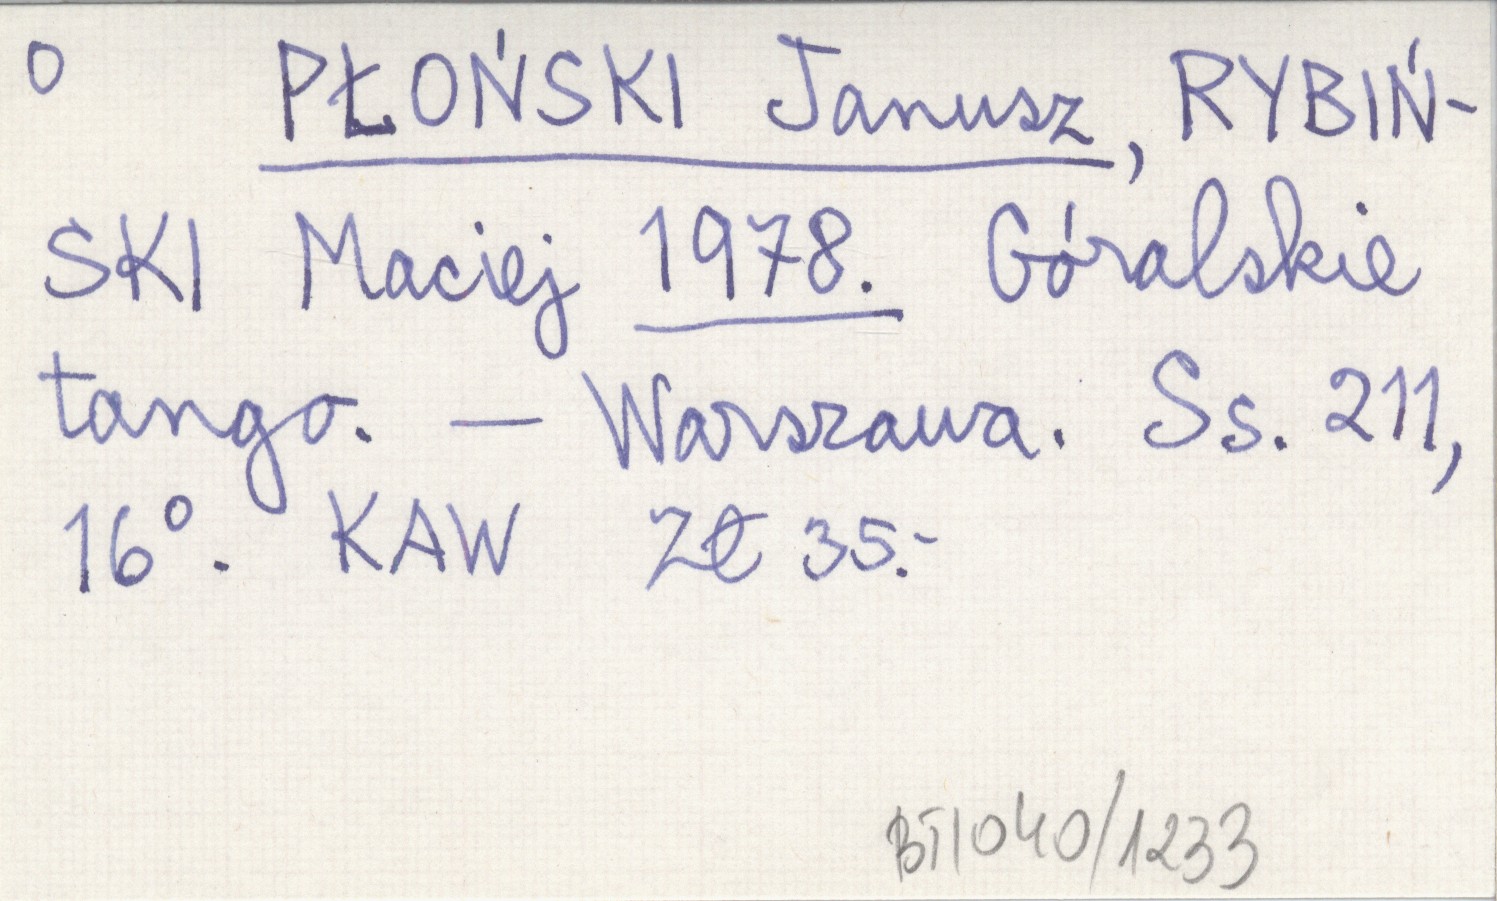 o PŁOŃSKI Janusz, RYBIŃ-
SKI Maciej 1978. Góralskie
tango. — Warszawa. Ss. 211,
16°. KAW Zł 35.-
BT1040/1233